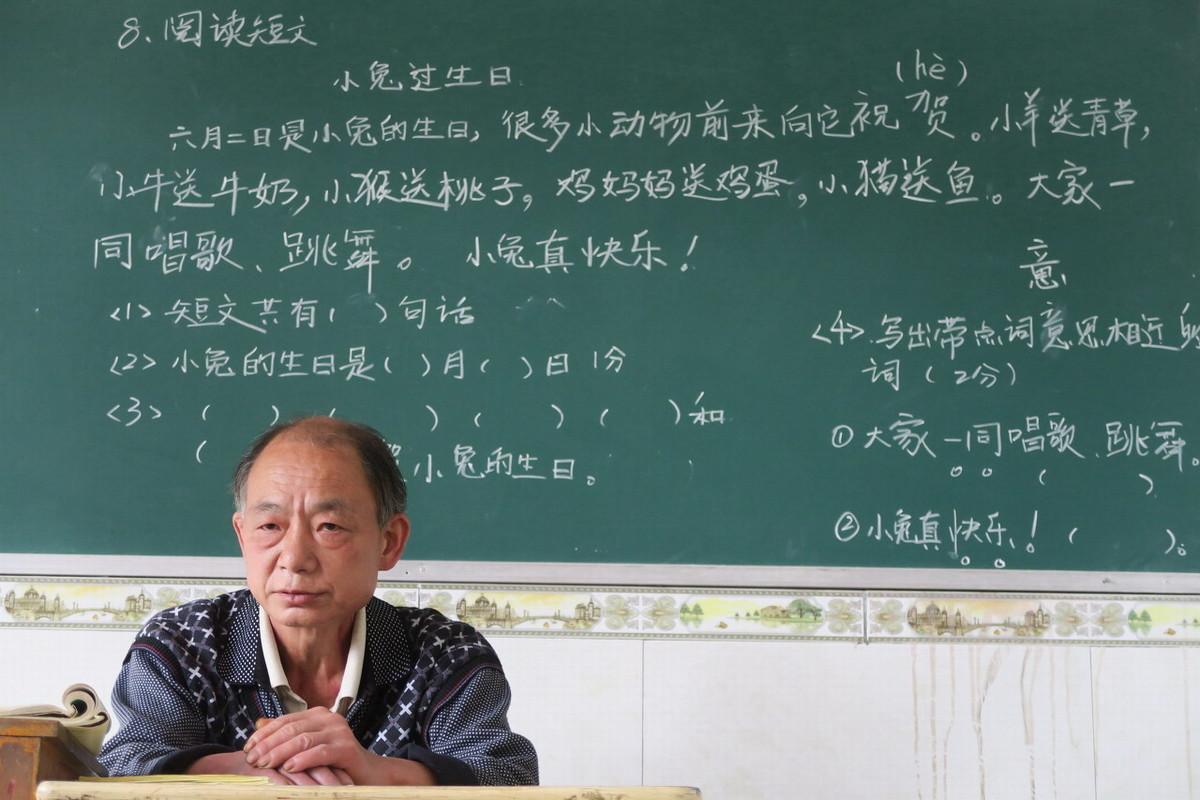 8、阅读短文
小兔过生日
(hè)
六月二日是小兔的生日，很多小动物前来向它祝贺。小羊送青草，
小牛送牛奶，小猴送桃子。鸡妈妈送鸡蛋，小猫送鱼。大家一
同唱歌、跳舞。 小兔真快乐！
<1> 短文共有( )句话
<2> 小兔的生日是( )月( )日 1分
<3> ( ) ( ) ( ) ( )和
( 小兔的生日。
意
<4> 写出带点词意思相近的
词(2分)
①大家一同唱歌、跳舞。
( )
②小兔真快乐！( )。